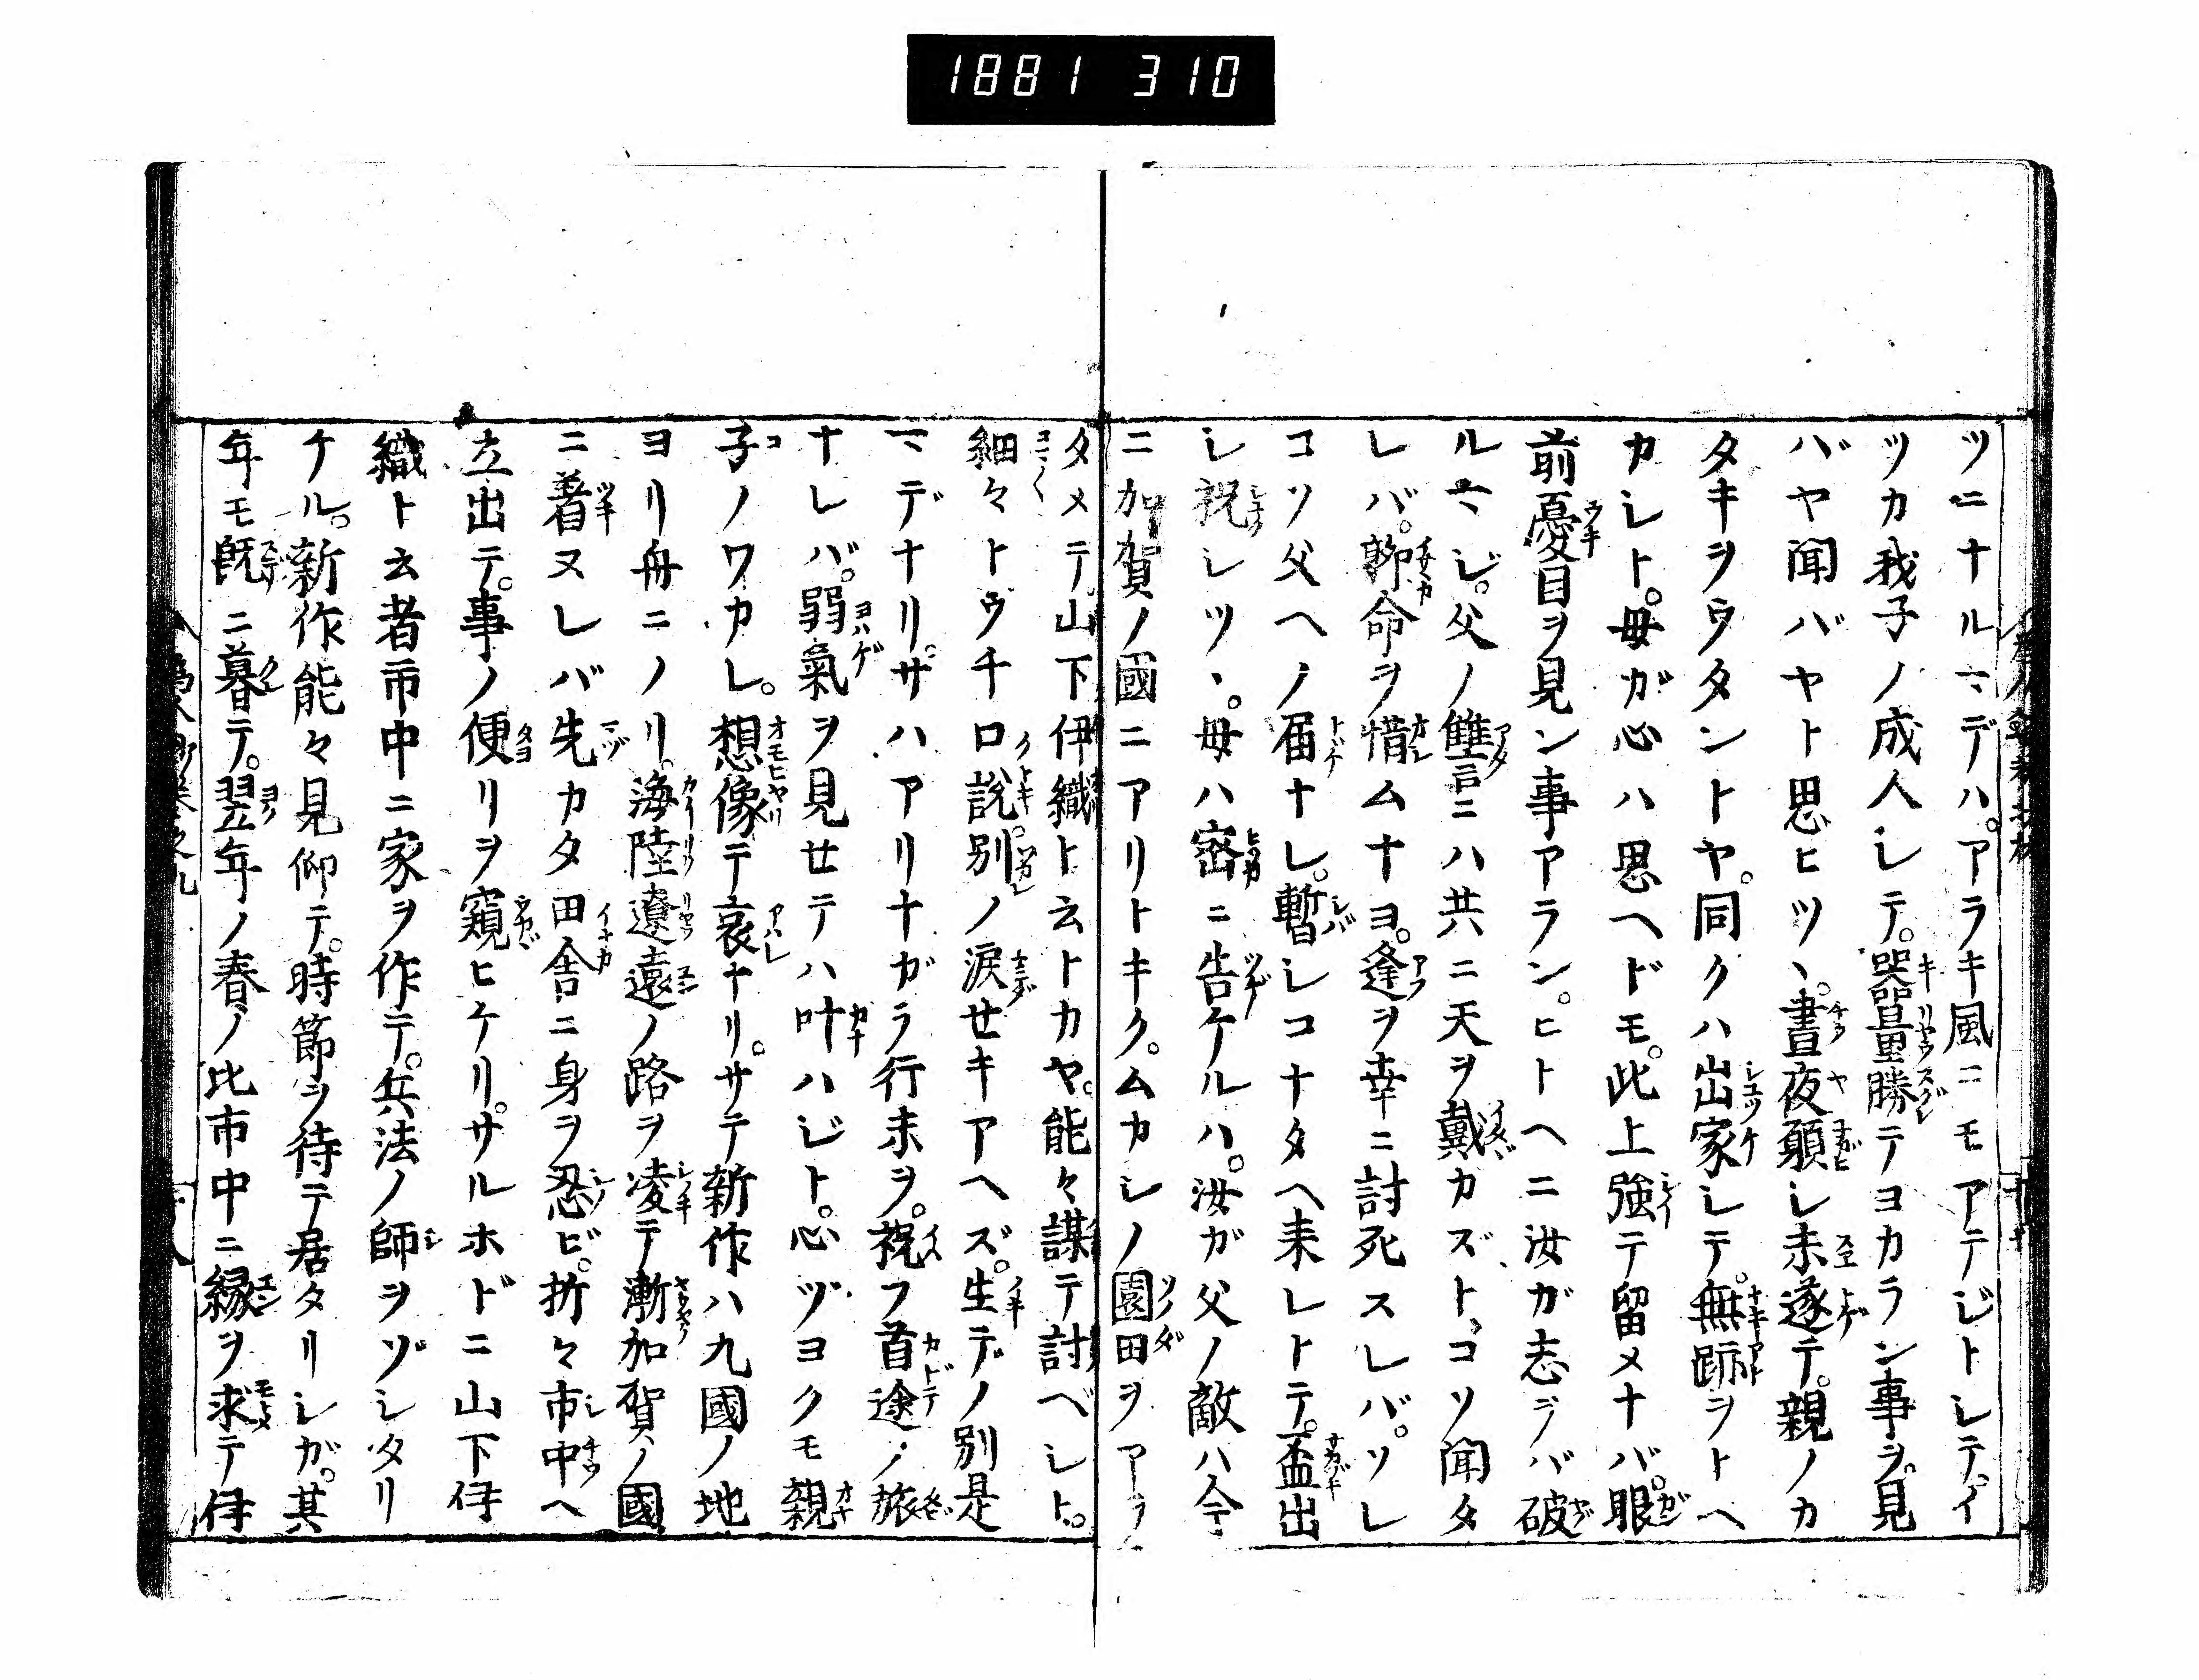 1881 310
ツニナルマデハ。アラキ風ニモアテジトシテ。イ
ツカ我子ノ成人シテ。器量勝テヨカラン事ヲ。見
バヤ聞バヤト思ヒツヽ。晝夜願シ末遂テ。親ノカ
タキヲウタントヤ。同クハ出家シテ。無跡ヲトヘ
カシト。母ガ心ハ思ヘドモ。此上強テ留メナバ。眼
前憂目ヲ見ン事アラン。ヒトヘニ汝ガ志ヲバ破
ルマジ。父ノ讐ニハ共ニ天ヲ戴カズト、コソ聞タ
レバ。聊命ヲ惜ムナヨ。逢ヲ幸ニ討死スレバ。ソレ
コソ父ヘノ届ナレ。暫シコナタヘ来レトテ。盃出
シ祝シツヽ。母ハ密ニ告ケルハ。汝ガ父ノ敵ハ今
ニ加賀ノ國ニアリトキク。ムカシノ園田ヲアラ
タメテ。山下伊織ト云トカヤ。能々謀テ討ベシト。
細々トウチロ説。別ノ涙せキアヘズ。生デノ別是
マデナリ。サハアリナガラ行末ヲ。祝フ首途ノ旅
ナレバ。弱氣ヲ見せテハ叶ハジト。心ヅヨクモ親
子ノワカレ。想像テ哀ナリ。サテ新作ハ九國ノ地
ヨリ舟ニノリ。海陸遼遠ノ路ヲ凌テ漸加賀ノ國
ニ着ヌレバ先カタ田舎ニ身ヲ忍ビ。折々市中ヘ
立出テ。事ノ便リヲ窺ヒケリ。サルホドニ山下伊
織ト云者市中ニ家ヲ作テ。兵法ノ師ヲゾシタリ
ケル。新作能々見仰テ。時節ヲ待テ居タリシガ。其
年モ既ニ暮テ。翌年ノ春ノ比市中ニ縁ヲ求テ伊